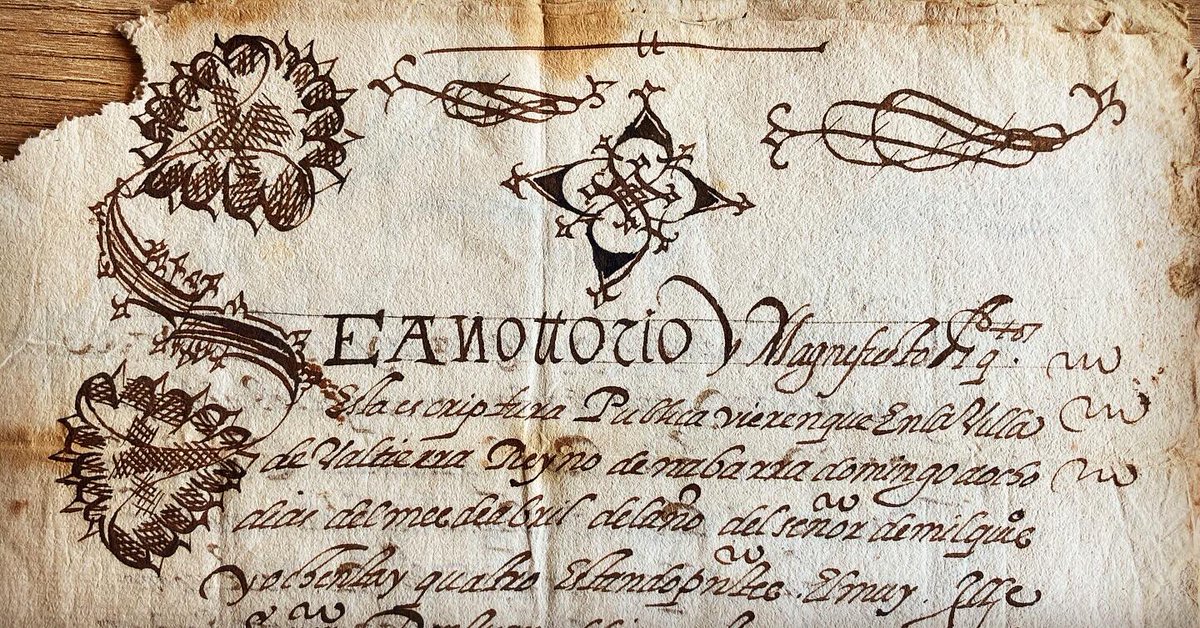 SEA Nottorio y Magnifiesto A qtos
Esta escriptura Publica vieren que En la Villa
de Valtierra Reyno de nabarra domingo a ocho
dias del mes de abril del año del señor de mil quios
y ochenta y quatro Estando pntes El muy Ille